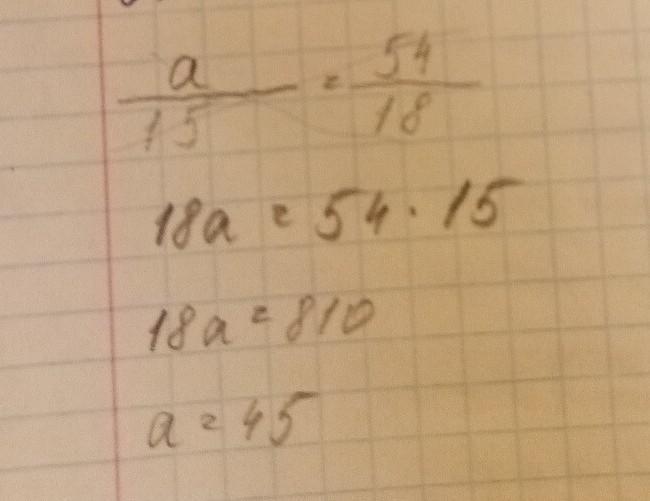 a/15 = 54/18
18a = 54 · 15
18a = 810
a = 45